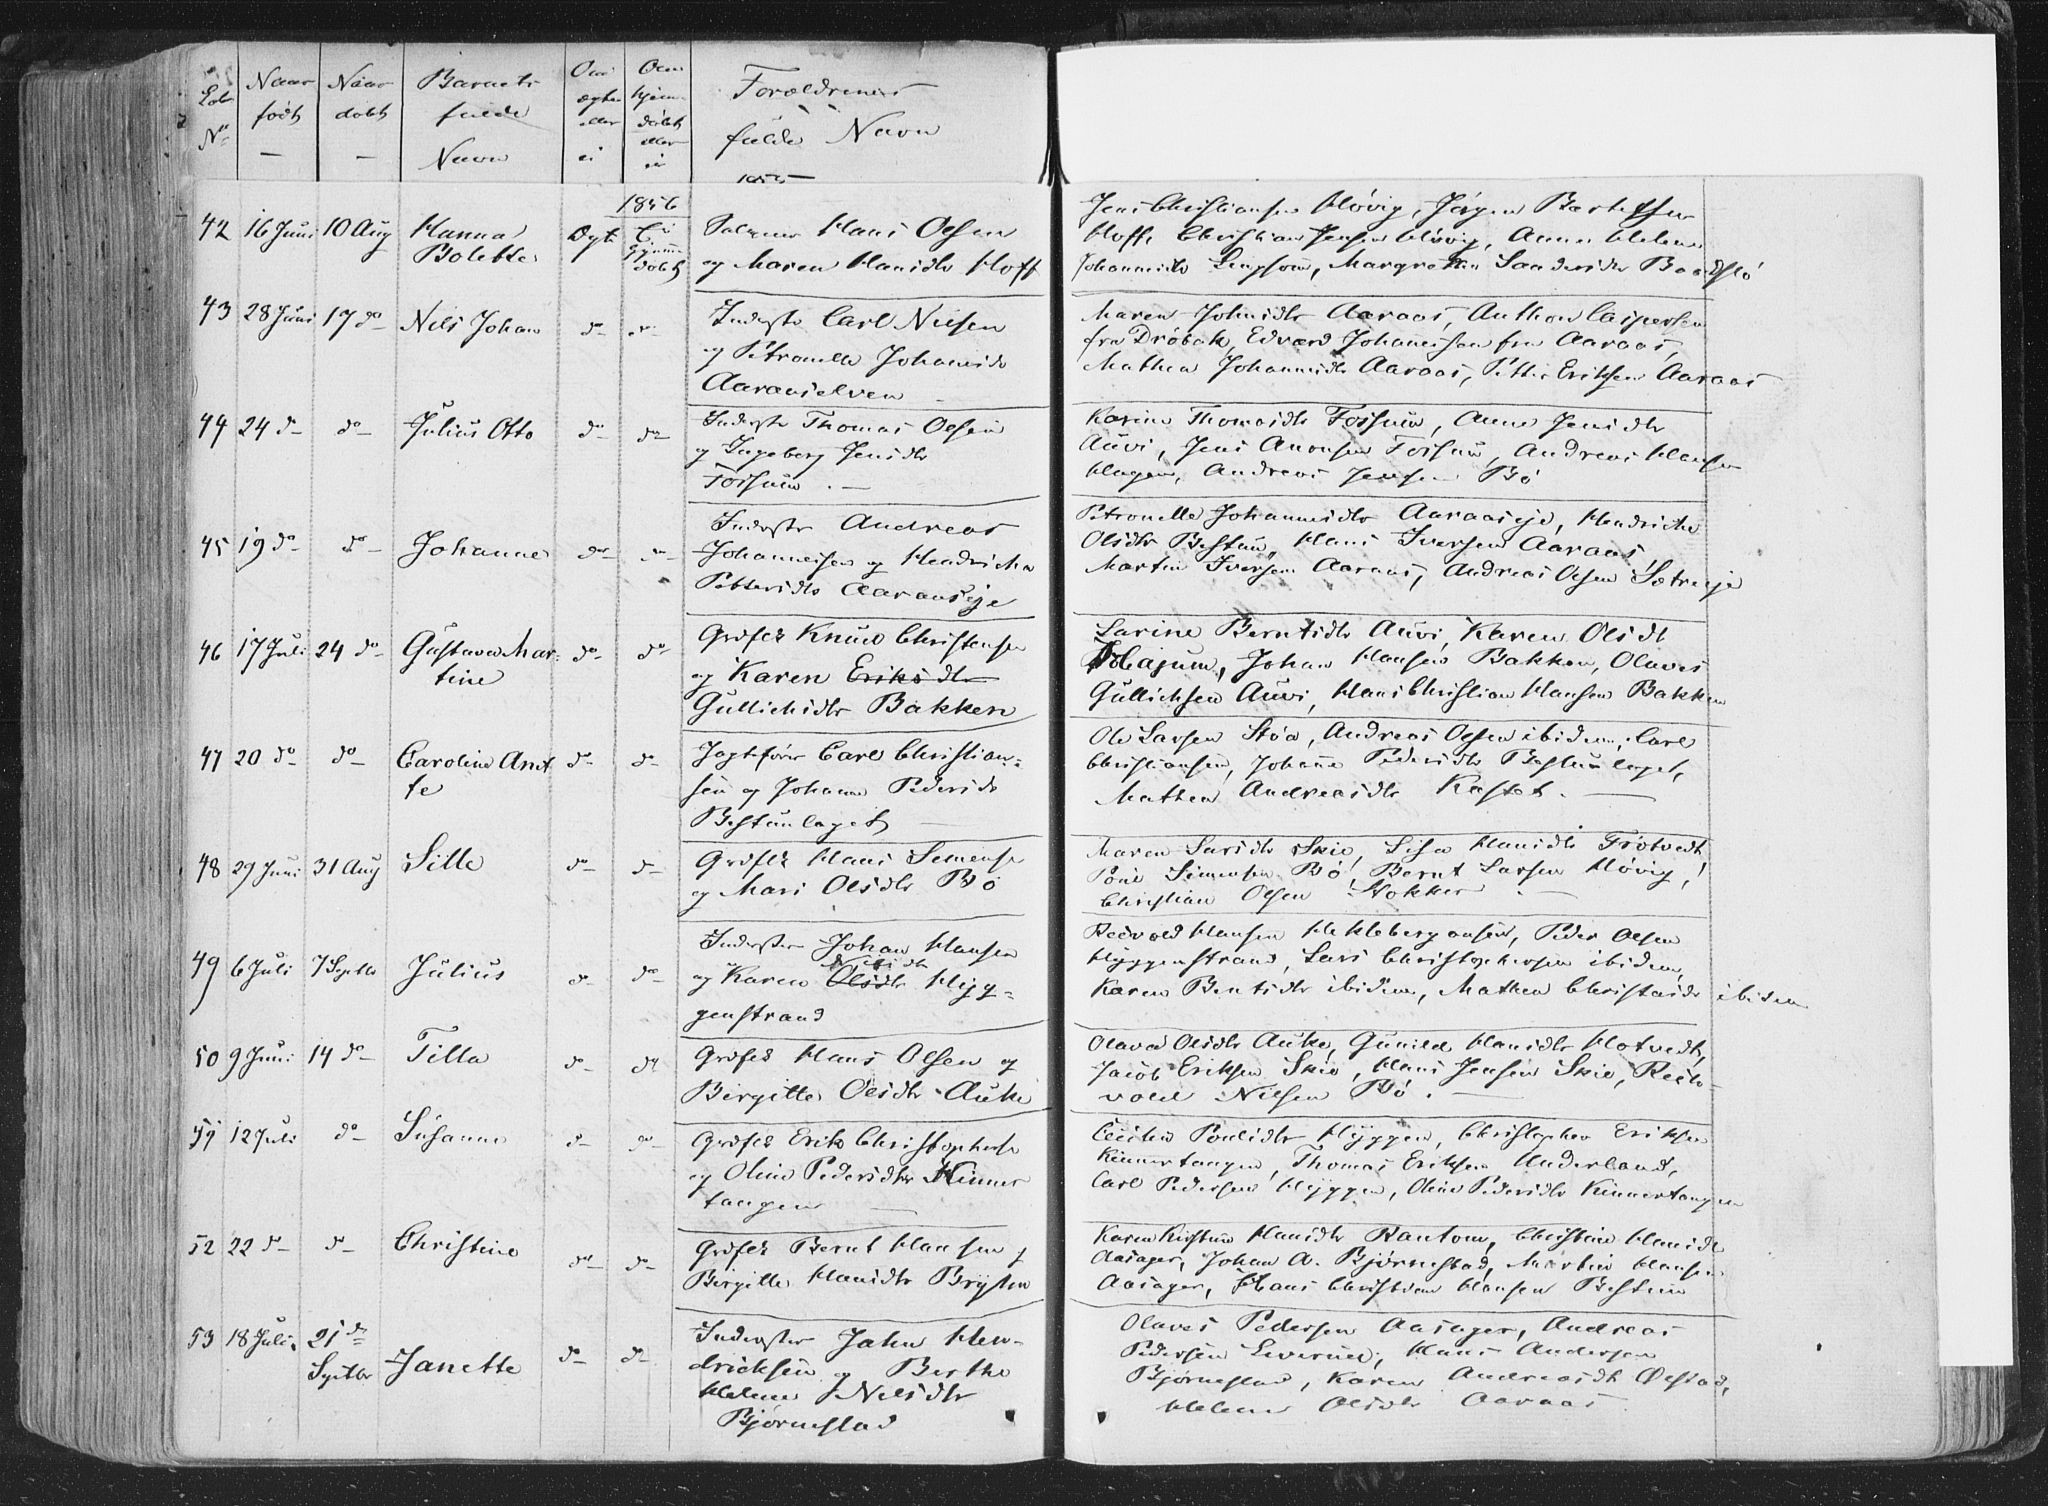 Lob No Naar født — Naar døbt — Barnets fulde Navn Om ægte eller ei Om hjemdøbt eller ei Forældrenes fulde Navn
1855
1856
42 16 Juni 10 Aug Hanna Bolette Ægte Ei hjemmedøbt
Hans Olsen
og Maren Hansdtr Hoff
Jens Christiansen Høvig, Jørgen
Hoff, Christian Jensen Høvig, Anne Helene
Johannesdtr Margrethe
43 28 Juni 17 do Nils Johan do
Inderste Carl Nielsen
og Petronelle Johannesdr
Aaraaselven
Maren Johnsdtr Aaraas, Anthon Caspersen
fra Drøbak, Edvard Johannesen fra Aaraas,
Mathea Johannesdtr Aaraas, Petter Eriksen Aaraas
44 24 do do Julius Otto do do
Inderste Thomas Olsen
og Ingeborg Jensdtr
Fossum . —
Karine Thomasdtr Fossum, Anne Jensdtr
Auvi, Jens Fossum, Andreas Hansen
Hagen, Andreas Jensen Bø
45 19 do do Johanne do do
Inderste Andreas
Johannessen og Hendricha
Pettersdtr Aaraaseje
Petronelle Johannesdtr Aaraaseje, Hendricha
Olsdtr Bestum, Hans Iversen Aaraas,
Martin Iversen Aaraas, Andreas Olsen Sætreeje
46 17 Juli 24 do Gustava Martine do do
Grdfck Knud Christensen
og Karen Eriksdtr
Gullichsdtr Bakken
Larine Berntsdtr Auvi, Karen Olsdt
Johan Hansen Bakken, Olaves
Gullichsen Auvi, Hans Christian Hansen Bakken
47 20 do do Caroline Anette do do
Jagtfører Carl Christiansen
og Johanne Pedersdr
Bestumlaget
Ole Larsen Støa, Andreas Olsen ibidem, Carl
Christiansen, Johanne Pedersdtr Bestumlaget,
Mathea Andreasdtr Kastet. —
48 29 Juni 31 Aug Sille do do
Grdfck Hans Simensen
og Mari Olsdtr Bø
Maren Larsdtr Skie, Lisa Hansdtr Frøtvedt,
Poul Simensen Bø, Bernt Larsen Høvig,
Christian Olsen Stokker —
49 6 Juli 7 Septbr Julius do do
Inderster Johan Hansen
og Karen Olsdtr Hyggenstrand
Hansen Peder Olsen
Hyggenstrand, Lars Christophersen ibidem,
Karen Berntsdtr ibidem, Mathea ibidem
50 9 Juni 14 do Tilla do do
Grdfck Hans Olsen og
Birgitte Olsdtr Auke
Olava Olsdtr Auke, Gunild Hansdtr Hotvedt,
Jacob Eriksen Skie, Hans Jensen Skie,
Nielsen Bø. —
51 12 Juli do Susanne do do
Grdfck Erik Christophersen
og Oline Pedersdtr Kinnertangen —
Cecilia Poulsdtr Hyggen, Christopher Eriksen
Kinnertangen, Thomas Eriksen Underland,
Carl Pedersen Hyggen, Oline Pedersdtr Kinnertangen
52 22 do do Christine do do
Grdfck Bernt Hansen
Birgitte Hansdtr
Karen Kirstine Hansdtr Rantom, Christine Hansdtr
Aasager, Johan A. Bjørnestad, Martin Hansen
Aasager, Hans Christian Hansen Bestum
53 18 Juli 21 do Septbr Janette do do
Inderster John Hendricksen
og Berthe
Helene Nilsdtr
Bjørnestad
Olaves Pedersen Aasager, Andreas
Pedersen Hans Andersen
Bjørnestad, Karen Andreasdt Ørstad,
Helene Olsdtr Aaraas